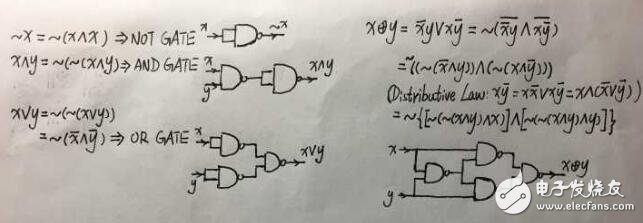 ~x = ~(x∧x) ⇒ NOT GATE x ~x
x∧y = ~(~(x∧y)) ⇒ AND GATE x y x∧y
x∨y = ~(~(x∨y))
= ~(x̄∧ȳ) ⇒ OR GATE x y x∨y
x⊕y = x̄y∨xȳ = ~(\overline{x̄y}∧\overline{xȳ})
= ~((~(x̄∧y))∧(~(x∧ȳ)))
(Distributive Law: xȳ = xx̄∨xȳ = x∧(x̄∨ȳ))
= ~{[~(~(x∧y)∧x)]∧[~(~(x∧y)∧y)]}
x x⊕y
y
电子发烧友
www.elecfans.com